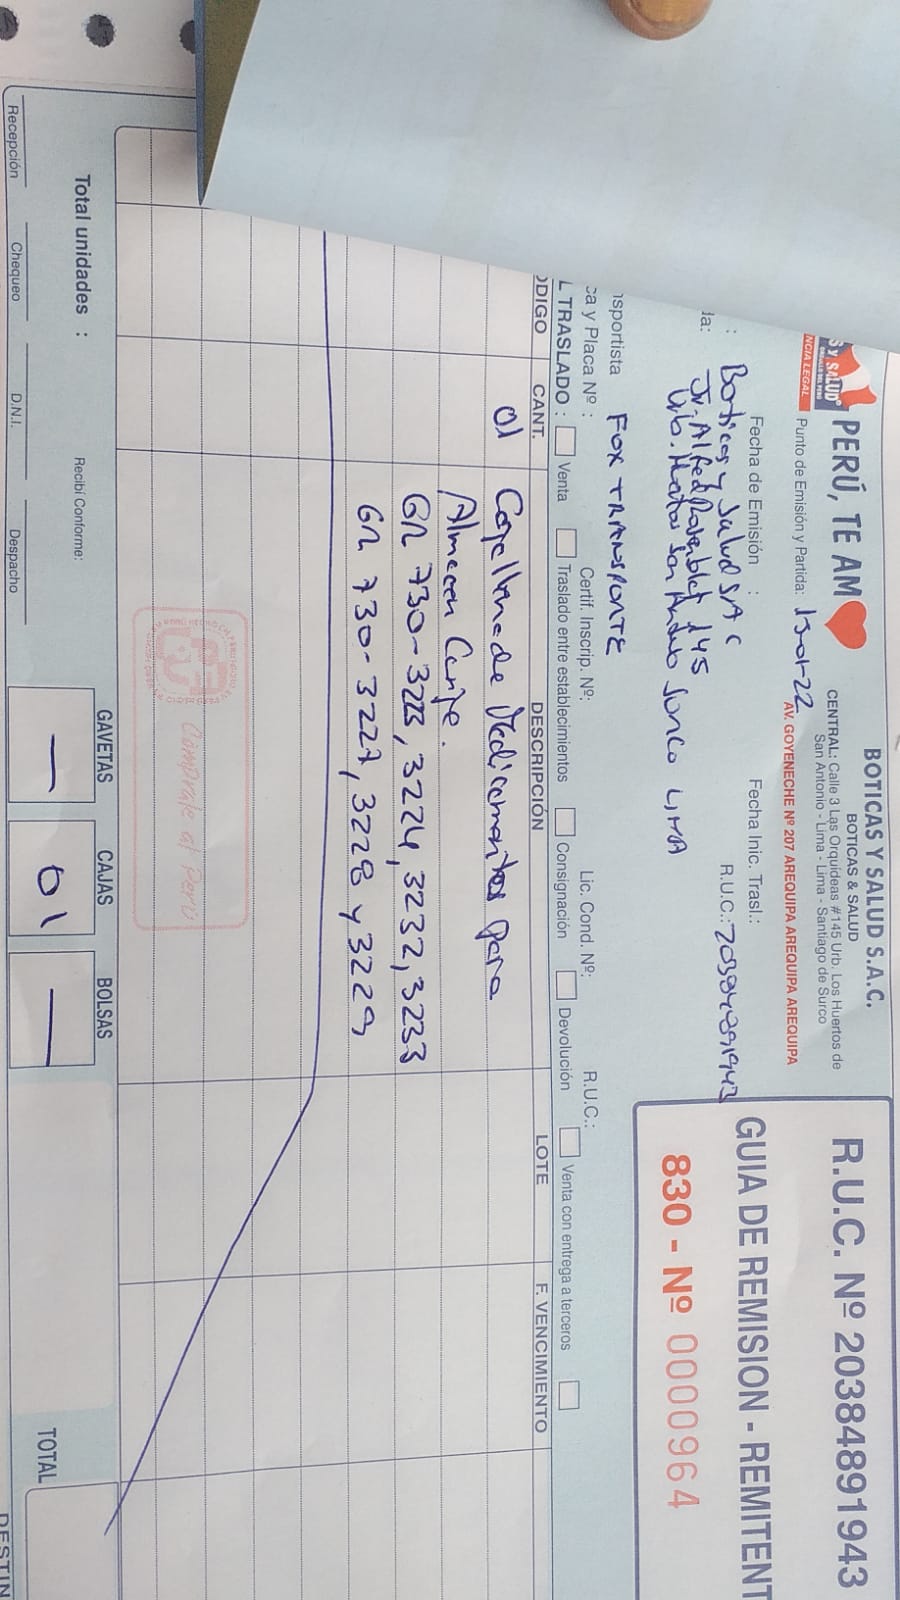 BOTICAS Y SALUD S.A.C.
BOTICAS & SALUD
CENTRAL: Calle 3 Las Orquídeas #145 Urb. Los Huertos de
San Antonio - Lima - Lima - Santiago de Surco
PERÚ, TE AM
S y SALUD
ORGULLO DEL PERÚ
NCIA LEGAL
Punto de Emisión y Partida:
AV. GOYENECHE Nº 207 AREQUIPA AREQUIPA AREQUIPA
R.U.C. Nº 20384891943
GUIA DE REMISION - REMITENT
830 - Nº 0000964
Fecha de Emisión : 15-01-22 Fecha Inic. Trasl.:
: Boticas y Salud SAC R.U.C.: 20384891943
da: Jr. Alfred Rosenblat 145
Urb. San Surco LIMA
nsportista FOX TRANSPORTE R.U.C.:
ca y Placa Nº : Certif. Inscrip. Nº: Lic. Cond. Nº:
L TRASLADO : Venta Traslado entre establecimientos Consignación Devolución Venta con entrega a terceros
ODIGO CANT. DESCRIPCIÓN LOTE F. VENCIMIENTO
01 Caja llena de Medicamentos para
Almacen Canje.
GR 730-3223, 3224, 3232, 3233
GR 730-3227, 3228 y 3229
Cómprale al Perú
GAVETAS CAJAS BOLSAS
Total unidades : Recibí Conforme: — 01 — TOTAL
Recepción Chequeo D.N.I. Despacho
DESTIN